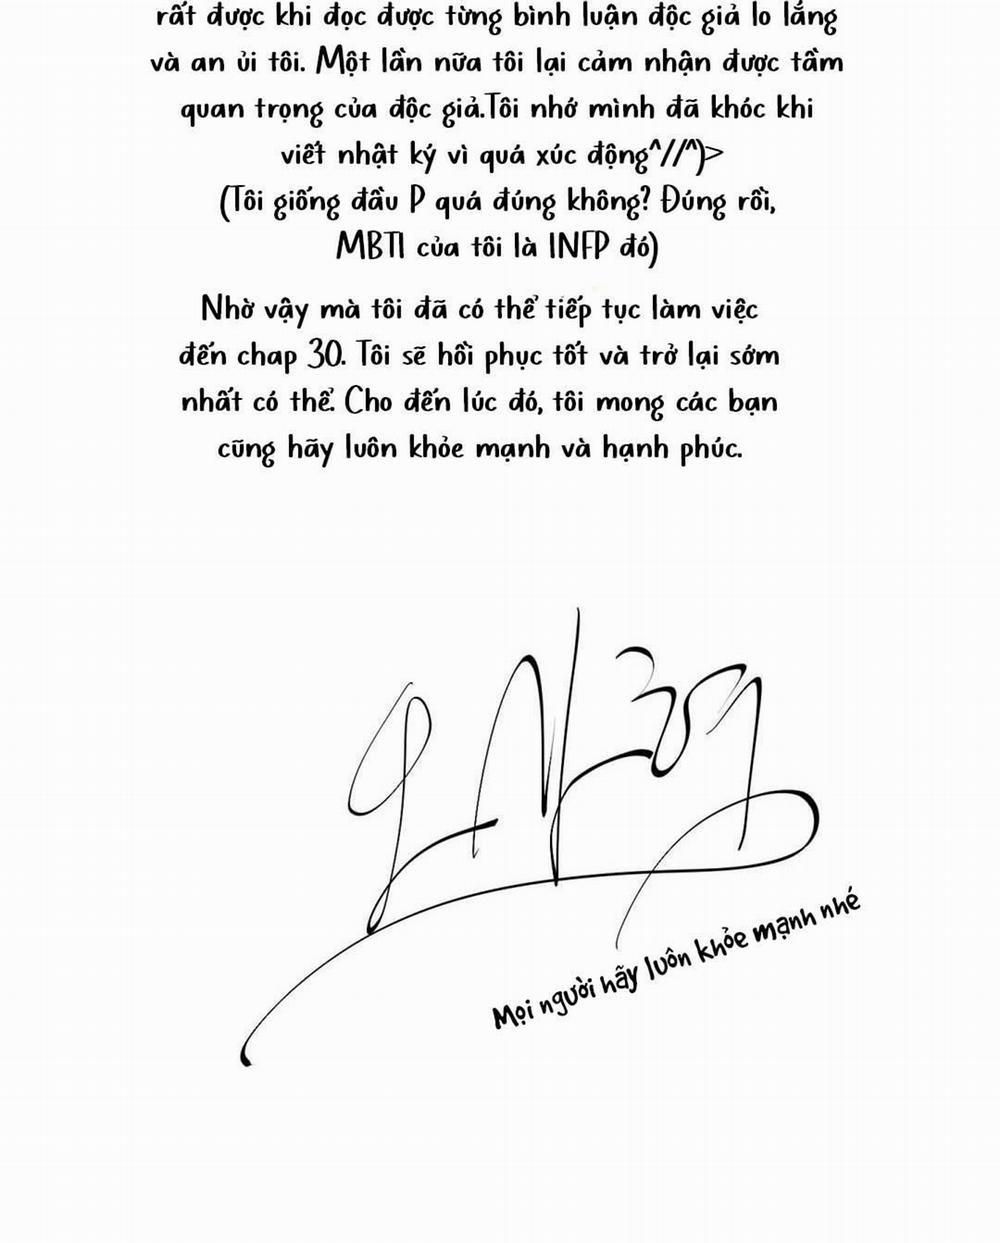 rất được khi đọc được từng bình luận độc giả lo lắng
và an ủi tôi. Một lần nữa tôi lại cảm nhận được tầm
quan trọng của độc giả.Tôi nhớ mình đã khóc khi
viết nhật ký vì quá xúc động^//^)>
(Tôi giống đầu P quá đúng không? Đúng rồi,
MBTI của tôi là INFP đó)
Nhờ vậy mà tôi đã có thể tiếp tục làm việc
đến chap 30. Tôi sẽ hồi phục tốt và trở lại sớm
nhất có thể. Cho đến lúc đó, tôi mong các bạn
cũng hãy luôn khỏe mạnh và hạnh phúc.
Mọi người hãy luôn khỏe mạnh nhé